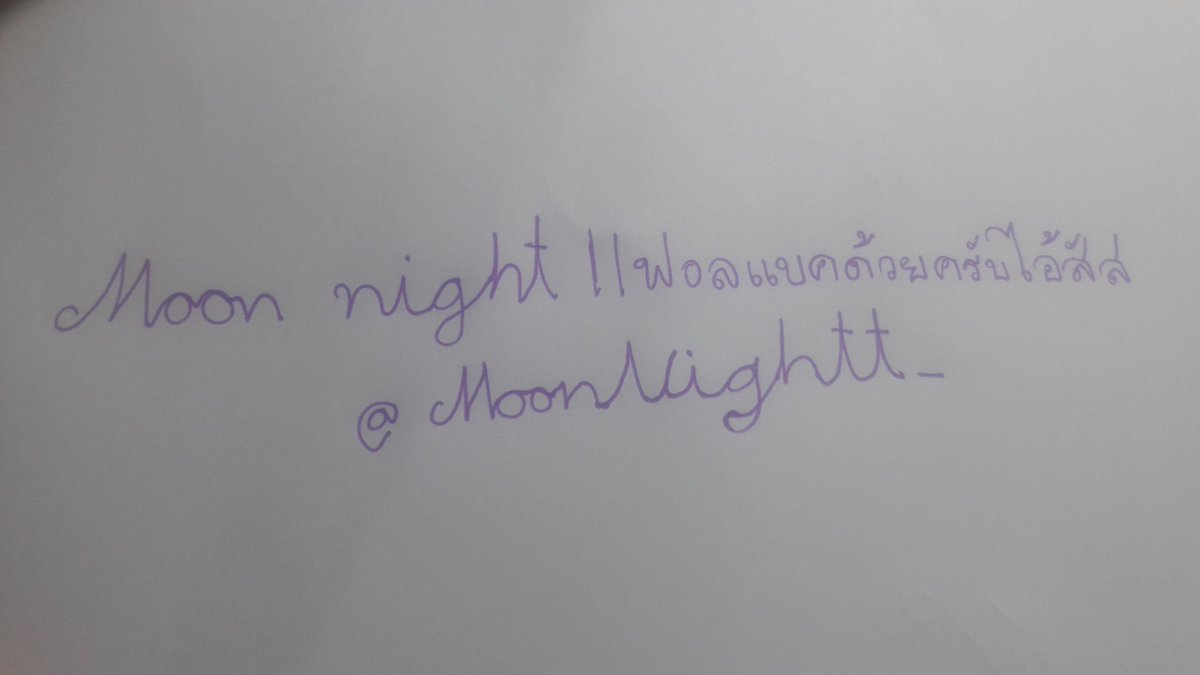 Moon night ||ฟอลแบคด้วยครับไอ้สัส
@MoonNightt_